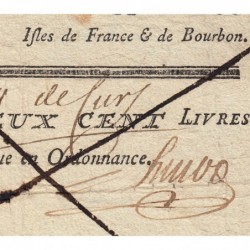 Isles de France & de Bourbon.
EUX CENT LIVRES
ue en Ordonnance.